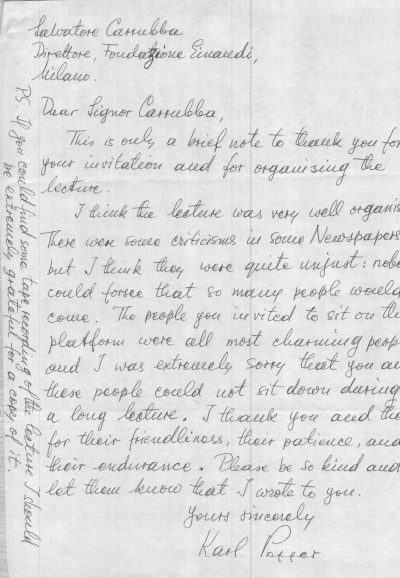 Salvatore Carrubba
Direttore, Fondazione Einaudi,
Milano.
Dear Signor Carrubba,
This is only a brief note to thank you for
your invitation and for organising the
lecture.
I think the lecture was very well organis
There were some criticisms in some Newspapers
but I think they were quite unjust: nobo
could forsee that so many people would
come. The people you invited to sit on the
platform were all most charming peop
and I was extremely sorry that you an
these people could not sit down during
a long lecture. I thank you and the
for their friendliness, their patience, and
their endurance. Please be so kind and
let them know that I wrote to you.
Yours sincerely
Karl Popper
PS. If you could find some tape recording of the lecture I should
be extremely grateful for a copy of it.